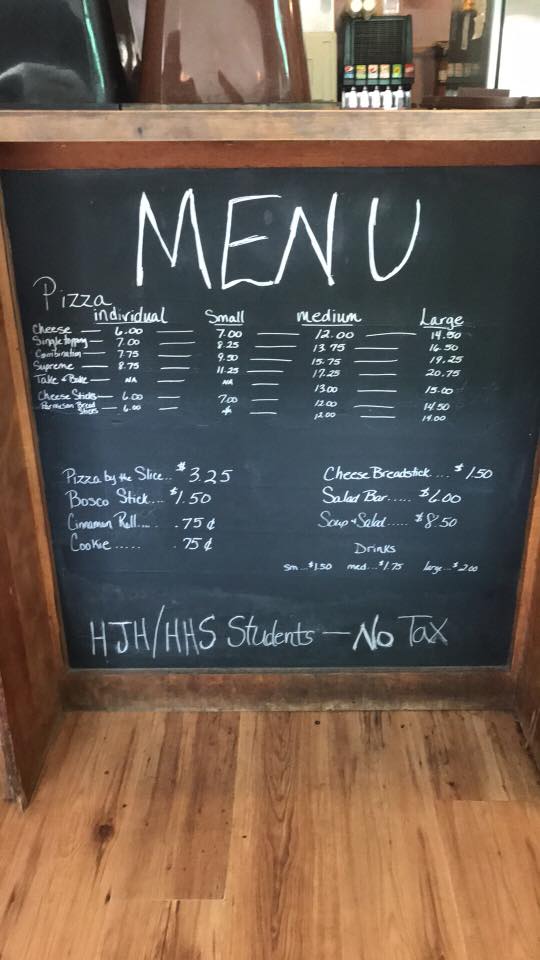 MENU
Pizza
individual Small medium Large
Cheese — 6.00 — 7.00 — 12.00 — 14.50
Single topping — 7.00 — 8.25 — 13.75 — 16.50
Combination — 7.75 — 9.50 — 15.75 — 19.25
Supreme — 8.75 — 11.25 — 17.25 — 20.75
Take & Bake — NA — NA — 13.00 — 15.00
Cheese Sticks — 6.00 — 7.00 — 12.00 — 14.50
Parmesan Bread Sticks — 6.00 — — 12.00 — 14.00
Pizza by the Slice... $3.25
Bosco Stick.... $1.50
Cinnamon Roll.... .75¢
Cookie ..... .75¢
Cheese Breadstick.... $1.50
Salad Bar..... $6.00
Soup & Salad..... $8.50
Drinks
Sm...$1.50 med...$1.75 large...$2.00
HJH/HHS Students — No Tax